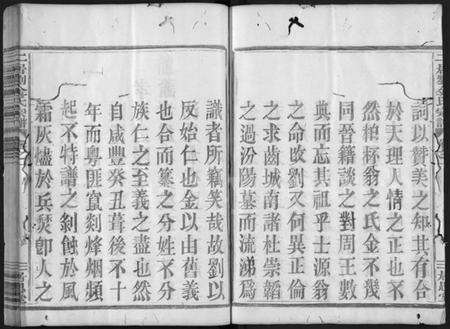 詞以贊美之知其有合
於天理人情之正也不
然翁之氏金不幾
同籍談之對周王數
典而忘其祖乎士源翁
之改劉又何異正倫
之求齒城南諸杜崇韜
之過汾陽墓而流涕爲
識者所竊笑哉故劉以
反始仁也金以由舊義
也合而纂之分姓不分
族仁之至義之盡也然
自咸豐癸丑葺後不十
年而粵匪烽烟頻
起不特譜之剝蝕於風
霜灰燼於兵燹卽人之